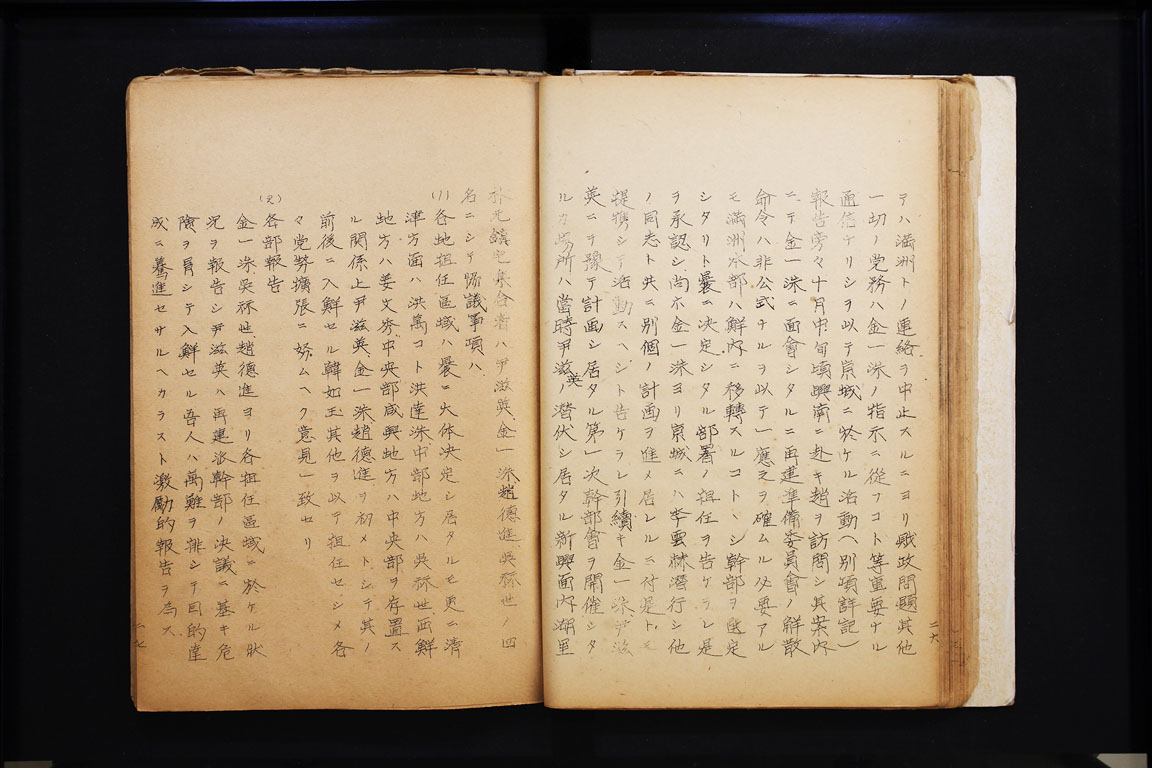 テハ満洲ト連絡ヲ中止スルニヨリ戦政問題其他
一切ノ党務ハ金一洙ノ指示ニ從フコト等重要ナル
通信ケリシヲ以テ京城ニ於ケル活動ヘ別項詳記)
報告旁々十月中旬頃興南ニ赴キ趙ヲ訪問シ其案内
ニテ金一洙ニ面會シタルニ再建準備委員會ノ解散
命令ハ非公式ナルヲ以テ一應之ヲ確ムル必要アル
モ満洲本部ハ鮮内ニ移轉スルコトヽシ幹部ヲ選定
シタリト曩ニ決定シタル部署ノ担任ヲ告ケラレ是
ヲ承認シ尚ホ金一洙ヨリ京城ニハ李雲林潜行シ他
ノ同志ト共ニ別個ノ計画ヲ進メ居レルニ付是トモ
提携シテ活動スヘシト告ケラレ引續キ金一洙、尹滋
英ニテ豫テ計画シ居タル第一次幹部會ヲ開催シタ
ルカ場所ハ當時尹滋英ノ潜伏シ居タル新興面内湖里
二六
朴元鎮宅集合者ハ尹滋英、金一洙、趙德進、吳秝世ノ四
名ニシテ協議事項ハ
(1) 各地担任區域ハ曩ニ大体決定シ居タルモ更ニ清
津方面ハ洪萬コト洪達洙、中部地方ハ吳秝世、西鮮
地方ハ姜文秀、中央部咸興地方ハ中央部ヲ存置ス
ル関係上尹滋英、金一洙、趙德進ヲ初メトシテ其ノ
前後ニ入鮮セル韓如玉其他ヲ以テ担任セシメ各
々党勢擴張ニ努ムヘク意見一致セリ
(2) 各部報告
金一洙、吳秝世、趙德進ヨリ各担任區域ニ於ケル狀
況ヲ報告シ尹滋英ハ再建派幹部ノ決議ニ基キ危
險ヲ冐シテ入鮮セル吾人ハ萬難ヲ排シテ目的達
成ニ驀進セサルヘカラスト激励的報告ヲ為ス
二七